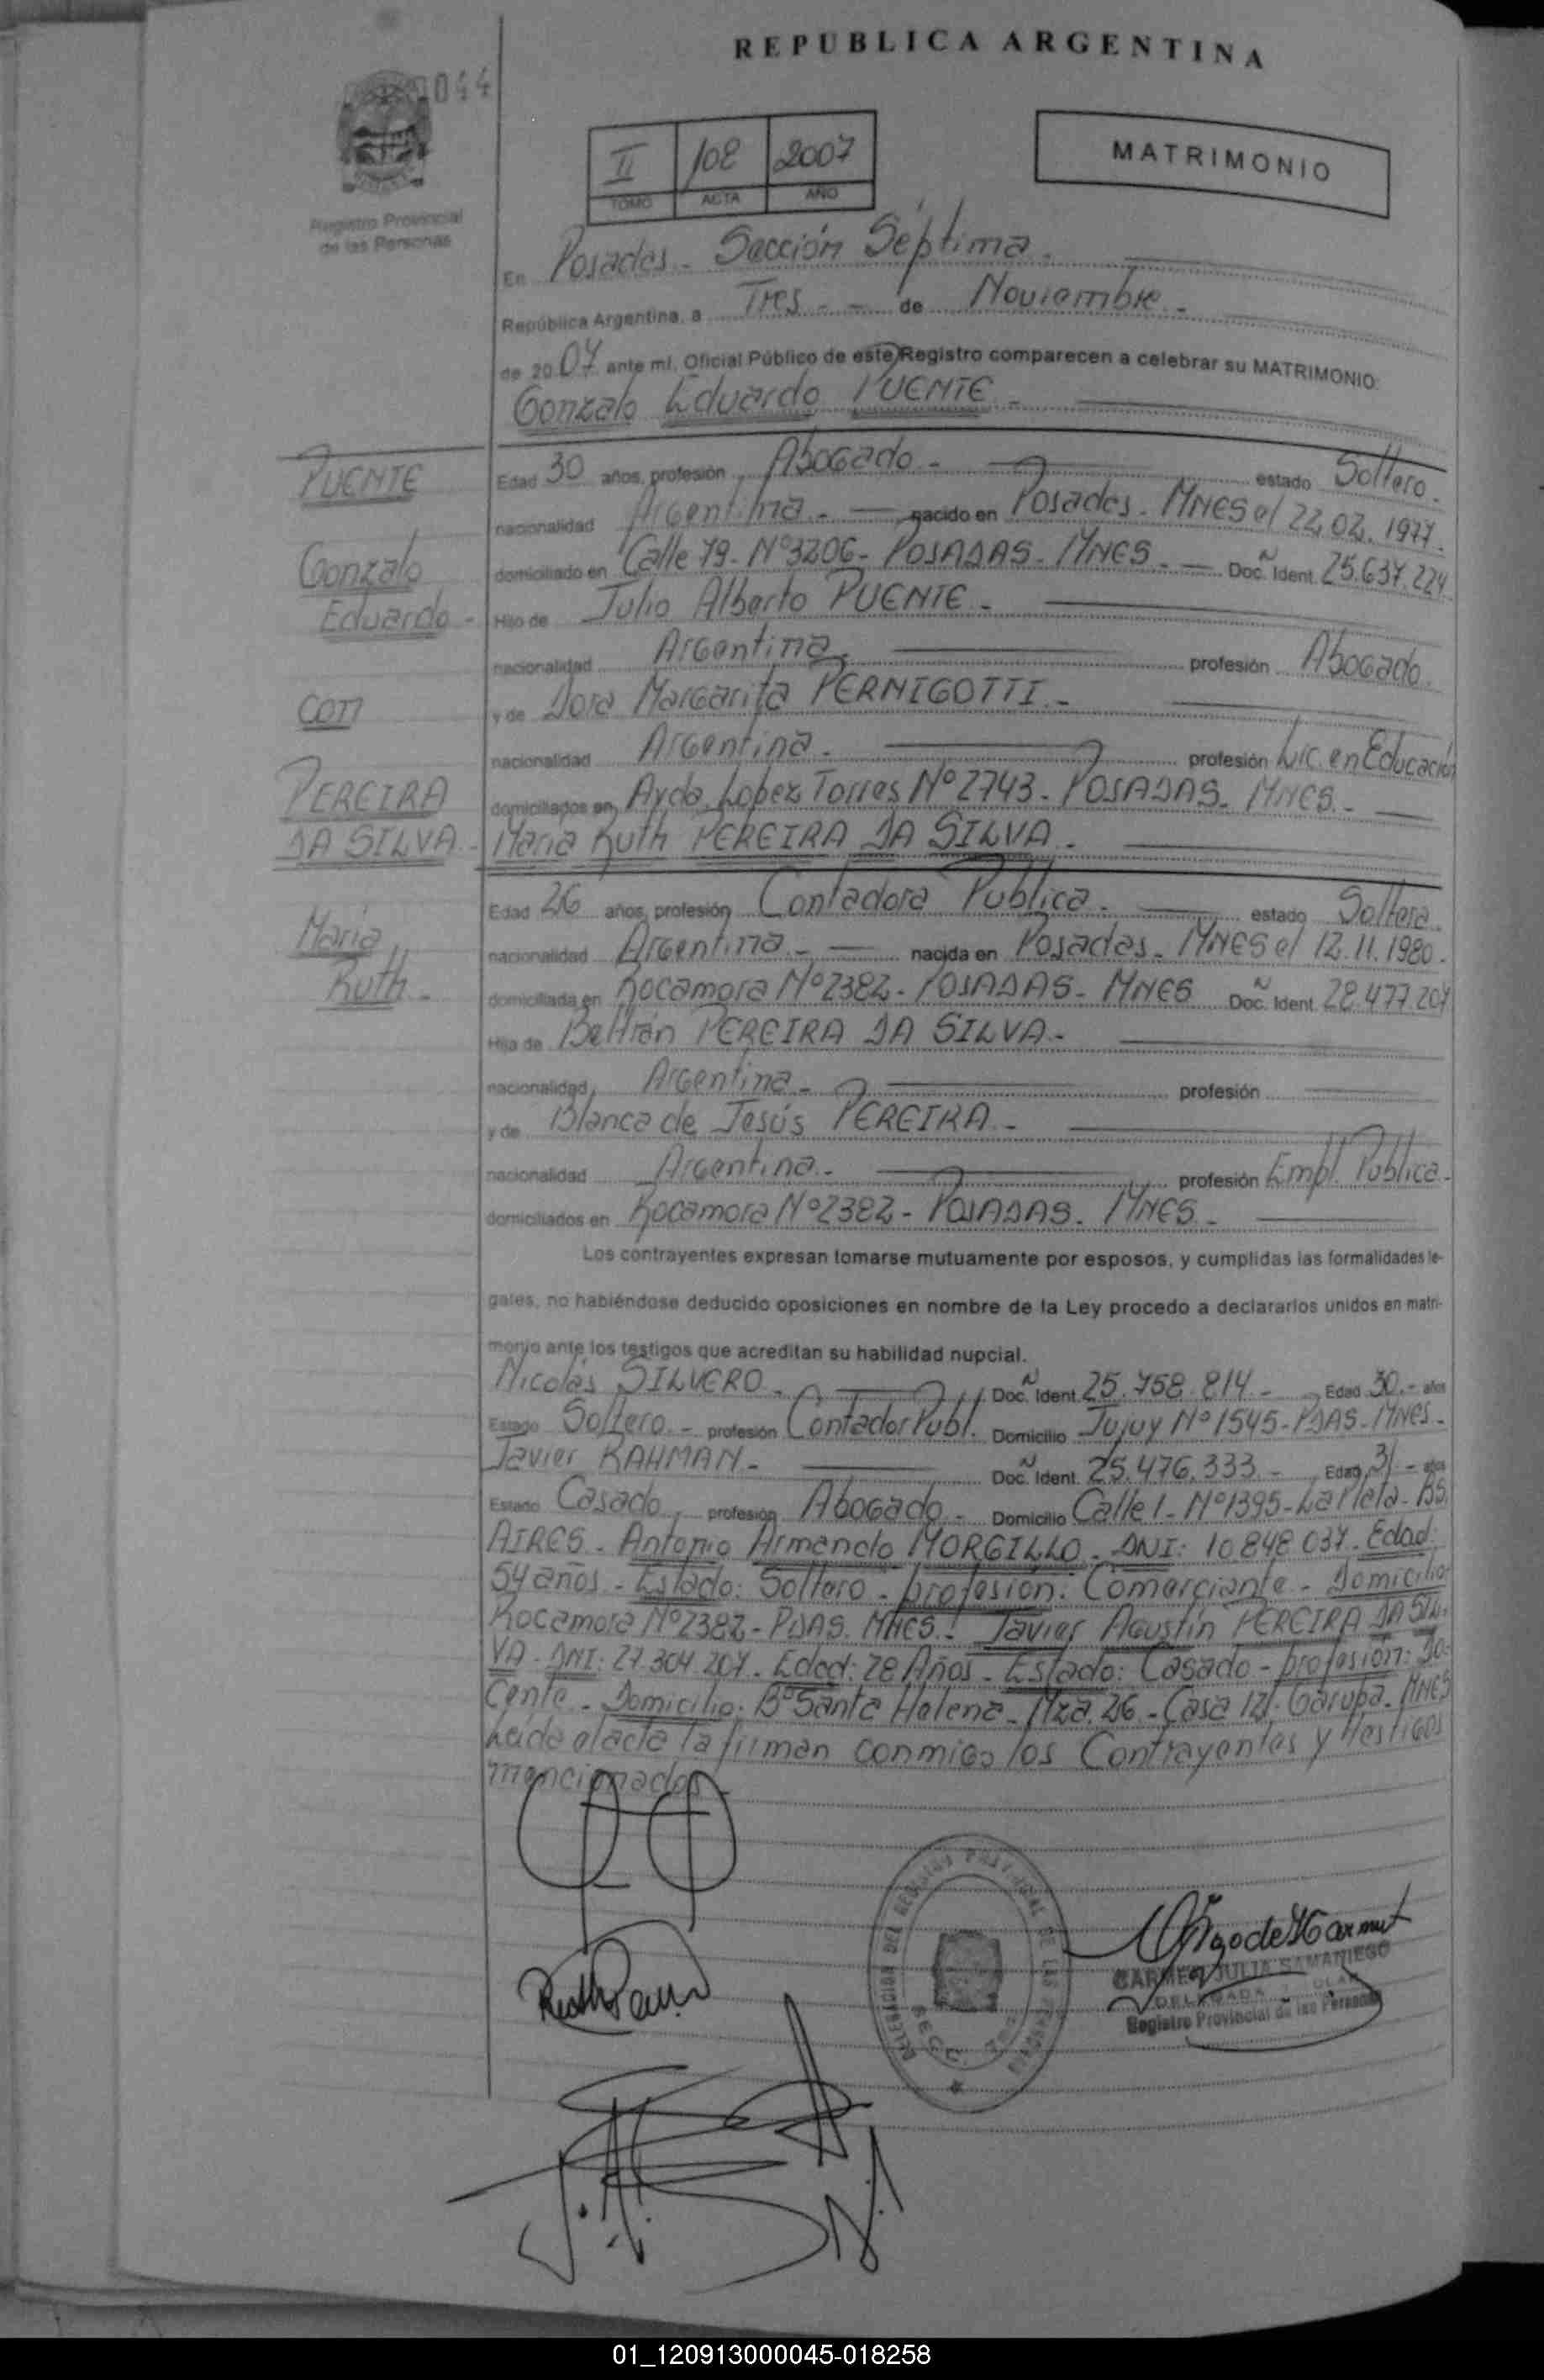 REPUBLICA ARGENTINA
044
II 108 2007
TOMO ACTA AÑO
MATRIMONIO
Registro Provincial
de las Personas
En Posadas - Sección Séptima.
República Argentina, a Tres - - de Noviembre -
de 2007 ante mí, Oficial Público de este Registro comparecen a celebrar su MATRIMONIO:
Gonzalo Eduardo PUENTE -
PUENTE
Gonzalo
Eduardo -
con
PEREIRA
DA SILVA -
Maria
Ruth -
Edad 30 años, profesión Abogado - estado Soltero -
nacionalidad Argentina - nacido en Posadas - MNES el 22.02.1977.
domiciliado en Calle 79 - Nº 3206 - POSADAS - MNES - Doc. Ident. 25.637.224
Hijo de Julio Alberto PUENTE -
nacionalidad Argentina - profesión Abogado.
y de Dora Margarita PERNIGOTTI -
nacionalidad Argentina - profesión Lic. en Educación
domiciliados en Avda. Lopez Torres Nº 2743 - POSADAS - MNES -
Maria Ruth PEREIRA DA SILVA -
Edad 26 años, profesión Contadora Publica - estado Soltera
nacionalidad Argentina - nacida en Posadas - MNES el 12.11.1980.
domiciliada en Rocamora Nº 2382 - POSADAS - MNES Doc. Ident. 28.477.207
Hija de Beltrán PEREIRA DA SILVA -
nacionalidad Argentina - profesión
y de Blanca de Jesús PEREIRA -
nacionalidad Argentina - profesión Empl. Publica -
domiciliados en Rocamora Nº 2382 - POSADAS - MNES -
Los contrayentes expresan tomarse mutuamente por esposos, y cumplidas las formalidades le-
gales, no habiéndose deducido oposiciones en nombre de la Ley procedo a declararlos unidos en matri-
monio ante los testigos que acreditan su habilidad nupcial.
Nicolás SILVERO - Doc. Ident. 25.758.814 - Edad 30 - años
Estado Soltero - profesión Contador Publ. Domicilio Jujuy Nº 1545 - PDAS - MNES -
Javier RAHMAN - Doc. Ident. 25.476.333 - Edad 31 - años
Estado Casado, profesión Abogado - Domicilio Calle 1 - Nº 1395 - La Plata - BS.
AIRES - Antonio Armando MORGILLO - DNI: 10.848.037 - Edad:
54 años - Estado: Soltero - profesión: Comerciante - Domicilio
Rocamora Nº 2382 - PDAS. MNES - Javier Agustín PEREIRA DA SIL-
VA - DNI: 27.304.207 - Edad: 28 Años - Estado: Casado - profesión: Do-
cente - Domicilio: Bº Santa Helena - Mza. 26 - Casa 12 - Garupa - MNES
Leida el acta la firman conmigo los Contrayentes y testigos
mencionados -
DELEGACION DEL REGISTRO PROVINCIAL DE LAS PERSONAS
SECC.
CARMEN JULIA SAMANIEGO
DELEGADA
Registro Provincial de las Personas
01_120913000045-018258